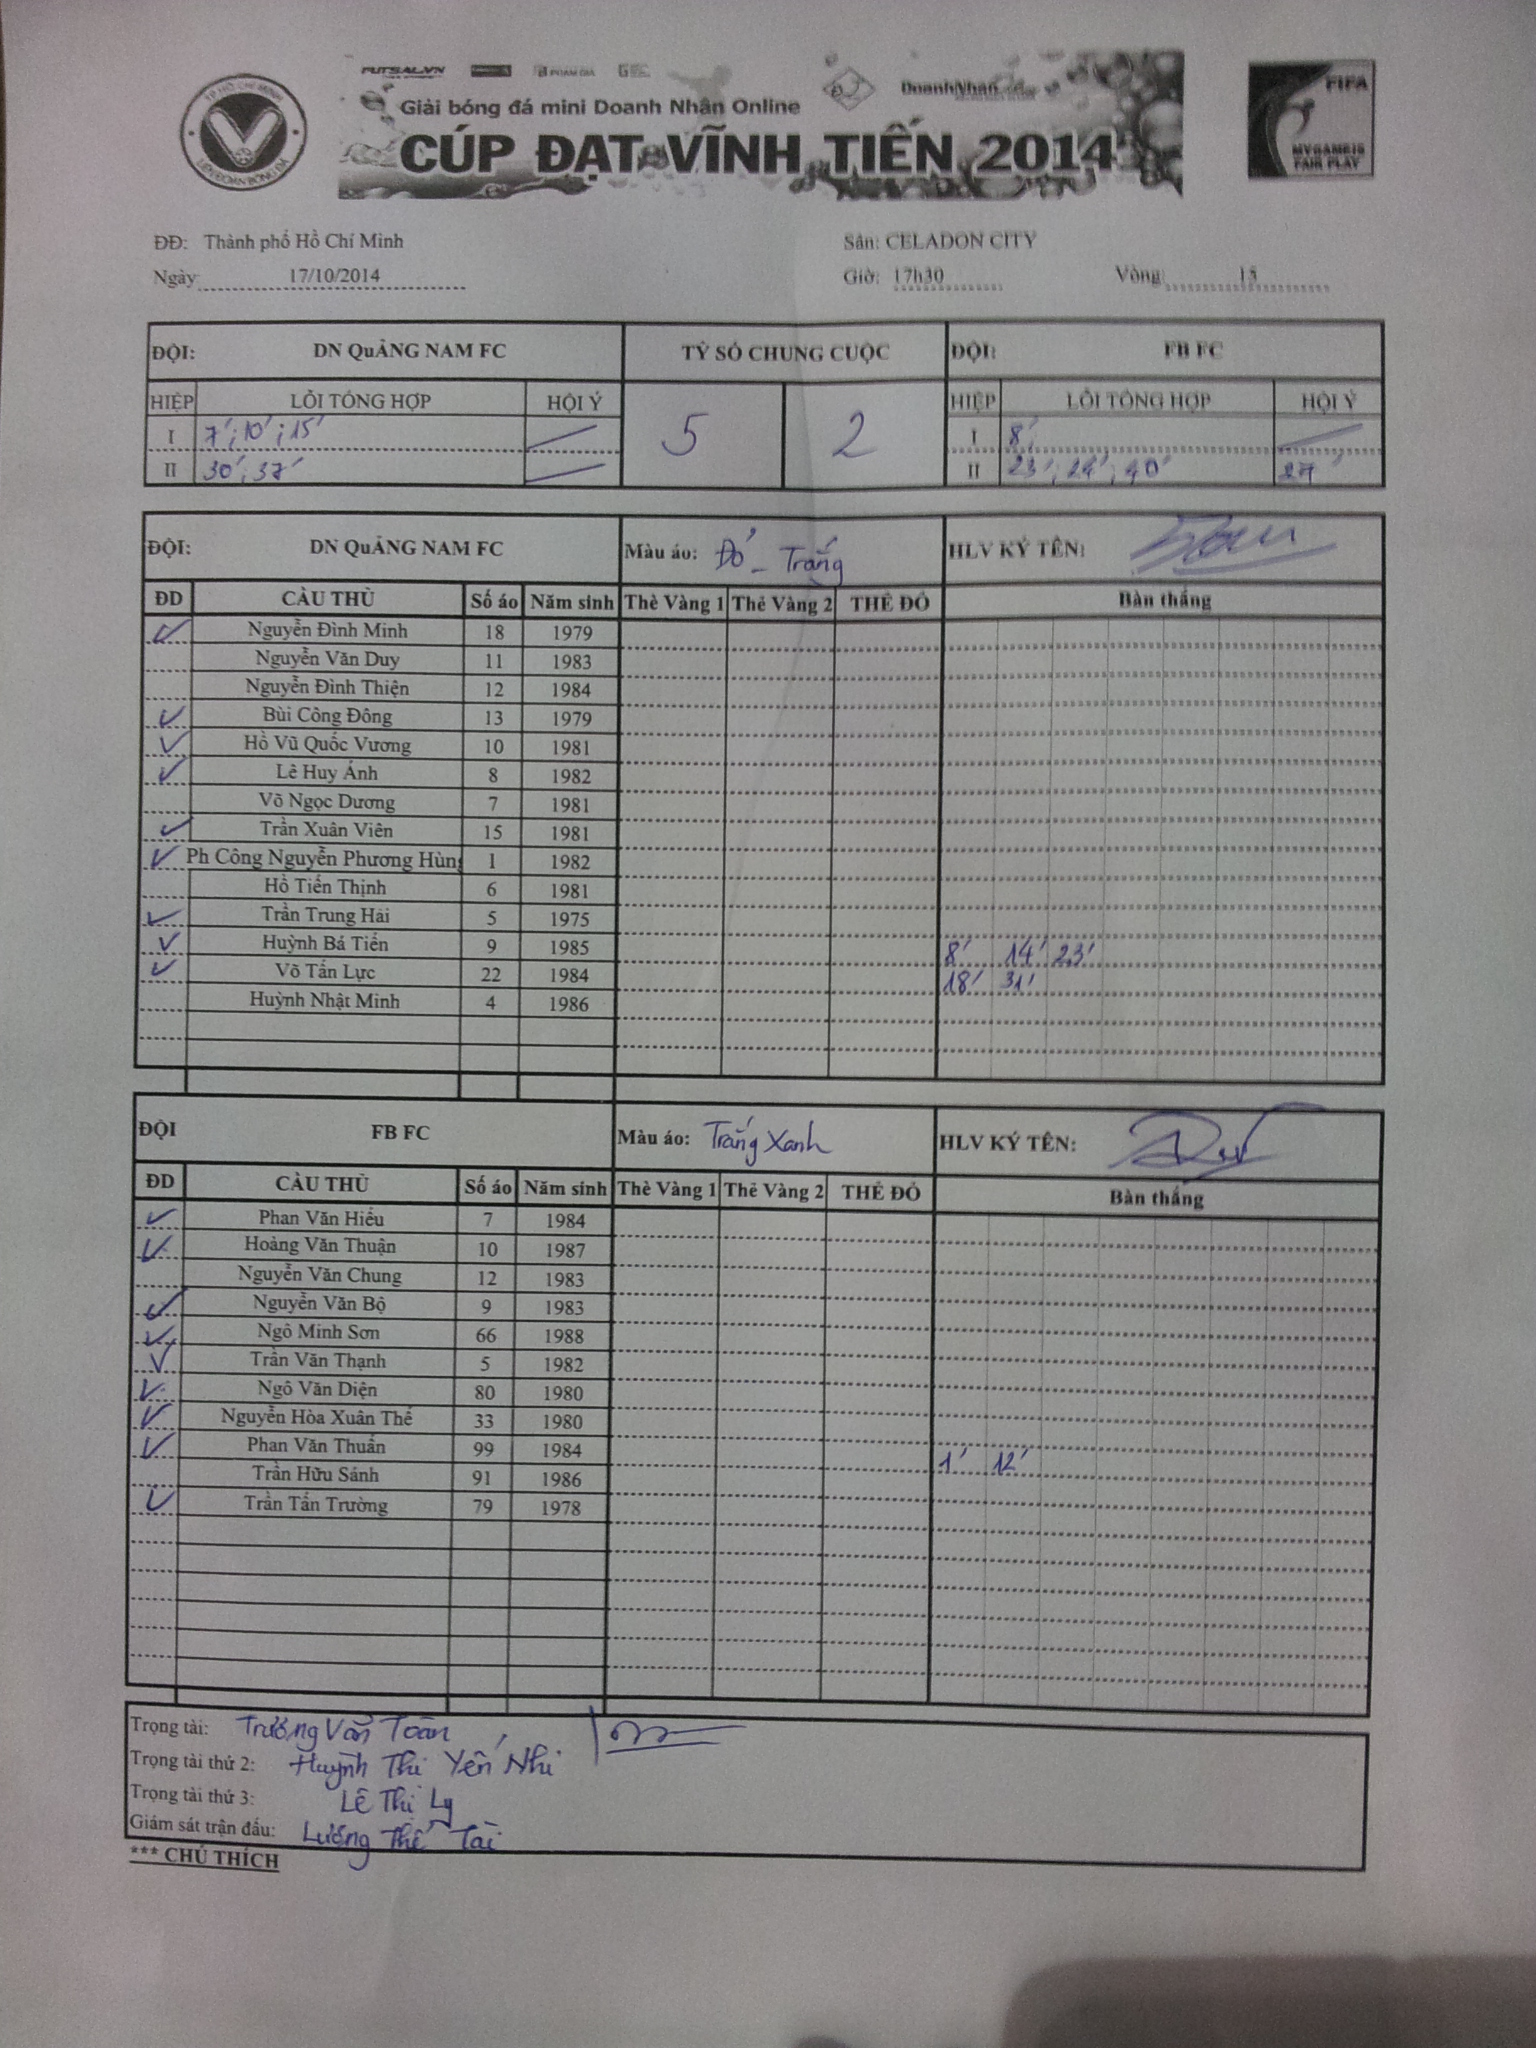 TP HỒ CHÍ MINH
LIÊN ĐOÀN BÓNG ĐÁ
FUTSAL.VN PHAM GIA
Giải bóng đá mini Doanh Nhân Online DoanhNhan
CÚP ĐẠT VĨNH TIẾN 2014
FIFA
MY GAME IS
FAIR PLAY
ĐĐ: Thành phố Hồ Chí Minh Sân: CELADON CITY
Ngày 17/10/2014 Giờ: 17h30 Vòng: 15
ĐỘI: DN QuẢNG NAM FC TỶ SỐ CHUNG CUỘC ĐỘI: FB FC
HIỆP LỖI TỔNG HỢP HỘI Ý 5 2 HIỆP LỖI TỔNG HỢP HỘI Ý
I 7'; 10'; 15' I 8';
II 30'; 37' II 23'; 24'; 40' 27'
ĐỘI: DN QuẢNG NAM FC Màu áo: Đỏ - Trắng HLV KÝ TÊN:
ĐD CẦU THỦ Số áo Năm sinh Thẻ Vàng 1 Thẻ Vàng 2 THẺ ĐỎ Bàn thắng
Nguyễn Đình Minh 18 1979
Nguyễn Văn Duy 11 1983
Nguyễn Đình Thiện 12 1984
Bùi Công Đông 13 1979
Hồ Vũ Quốc Vương 10 1981
Lê Huy Ánh 8 1982
Võ Ngọc Dương 7 1981
Trần Xuân Viên 15 1981
Ph Công Nguyễn Phương Hùng 1 1982
Hồ Tiến Thịnh 6 1981
Trần Trung Hải 5 1975
Huỳnh Bá Tiến 9 1985 8' 14' 23'
Võ Tấn Lực 22 1984 18' 31'
Huỳnh Nhật Minh 4 1986
ĐỘI FB FC Màu áo: Trắng Xanh HLV KÝ TÊN:
ĐD CẦU THỦ Số áo Năm sinh Thẻ Vàng 1 Thẻ Vàng 2 THẺ ĐỎ Bàn thắng
Phan Văn Hiếu 7 1984
Hoàng Văn Thuận 10 1987
Nguyễn Văn Chung 12 1983
Nguyễn Văn Bộ 9 1983
Ngô Minh Sơn 66 1988
Trần Văn Thạnh 5 1982
Ngô Văn Diện 80 1980
Nguyễn Hòa Xuân Thế 33 1980
Phan Văn Thuấn 99 1984 1' 12'
Trần Hữu Sánh 91 1986
Trần Tấn Trường 79 1978
Trọng tài: Trương Văn Toàn
Trọng tài thứ 2: Huỳnh Thị Yến Nhi
Trọng tài thứ 3: Lê Thị Ly
Giám sát trận đấu: Lương Thế Tài
*** CHÚ THÍCH